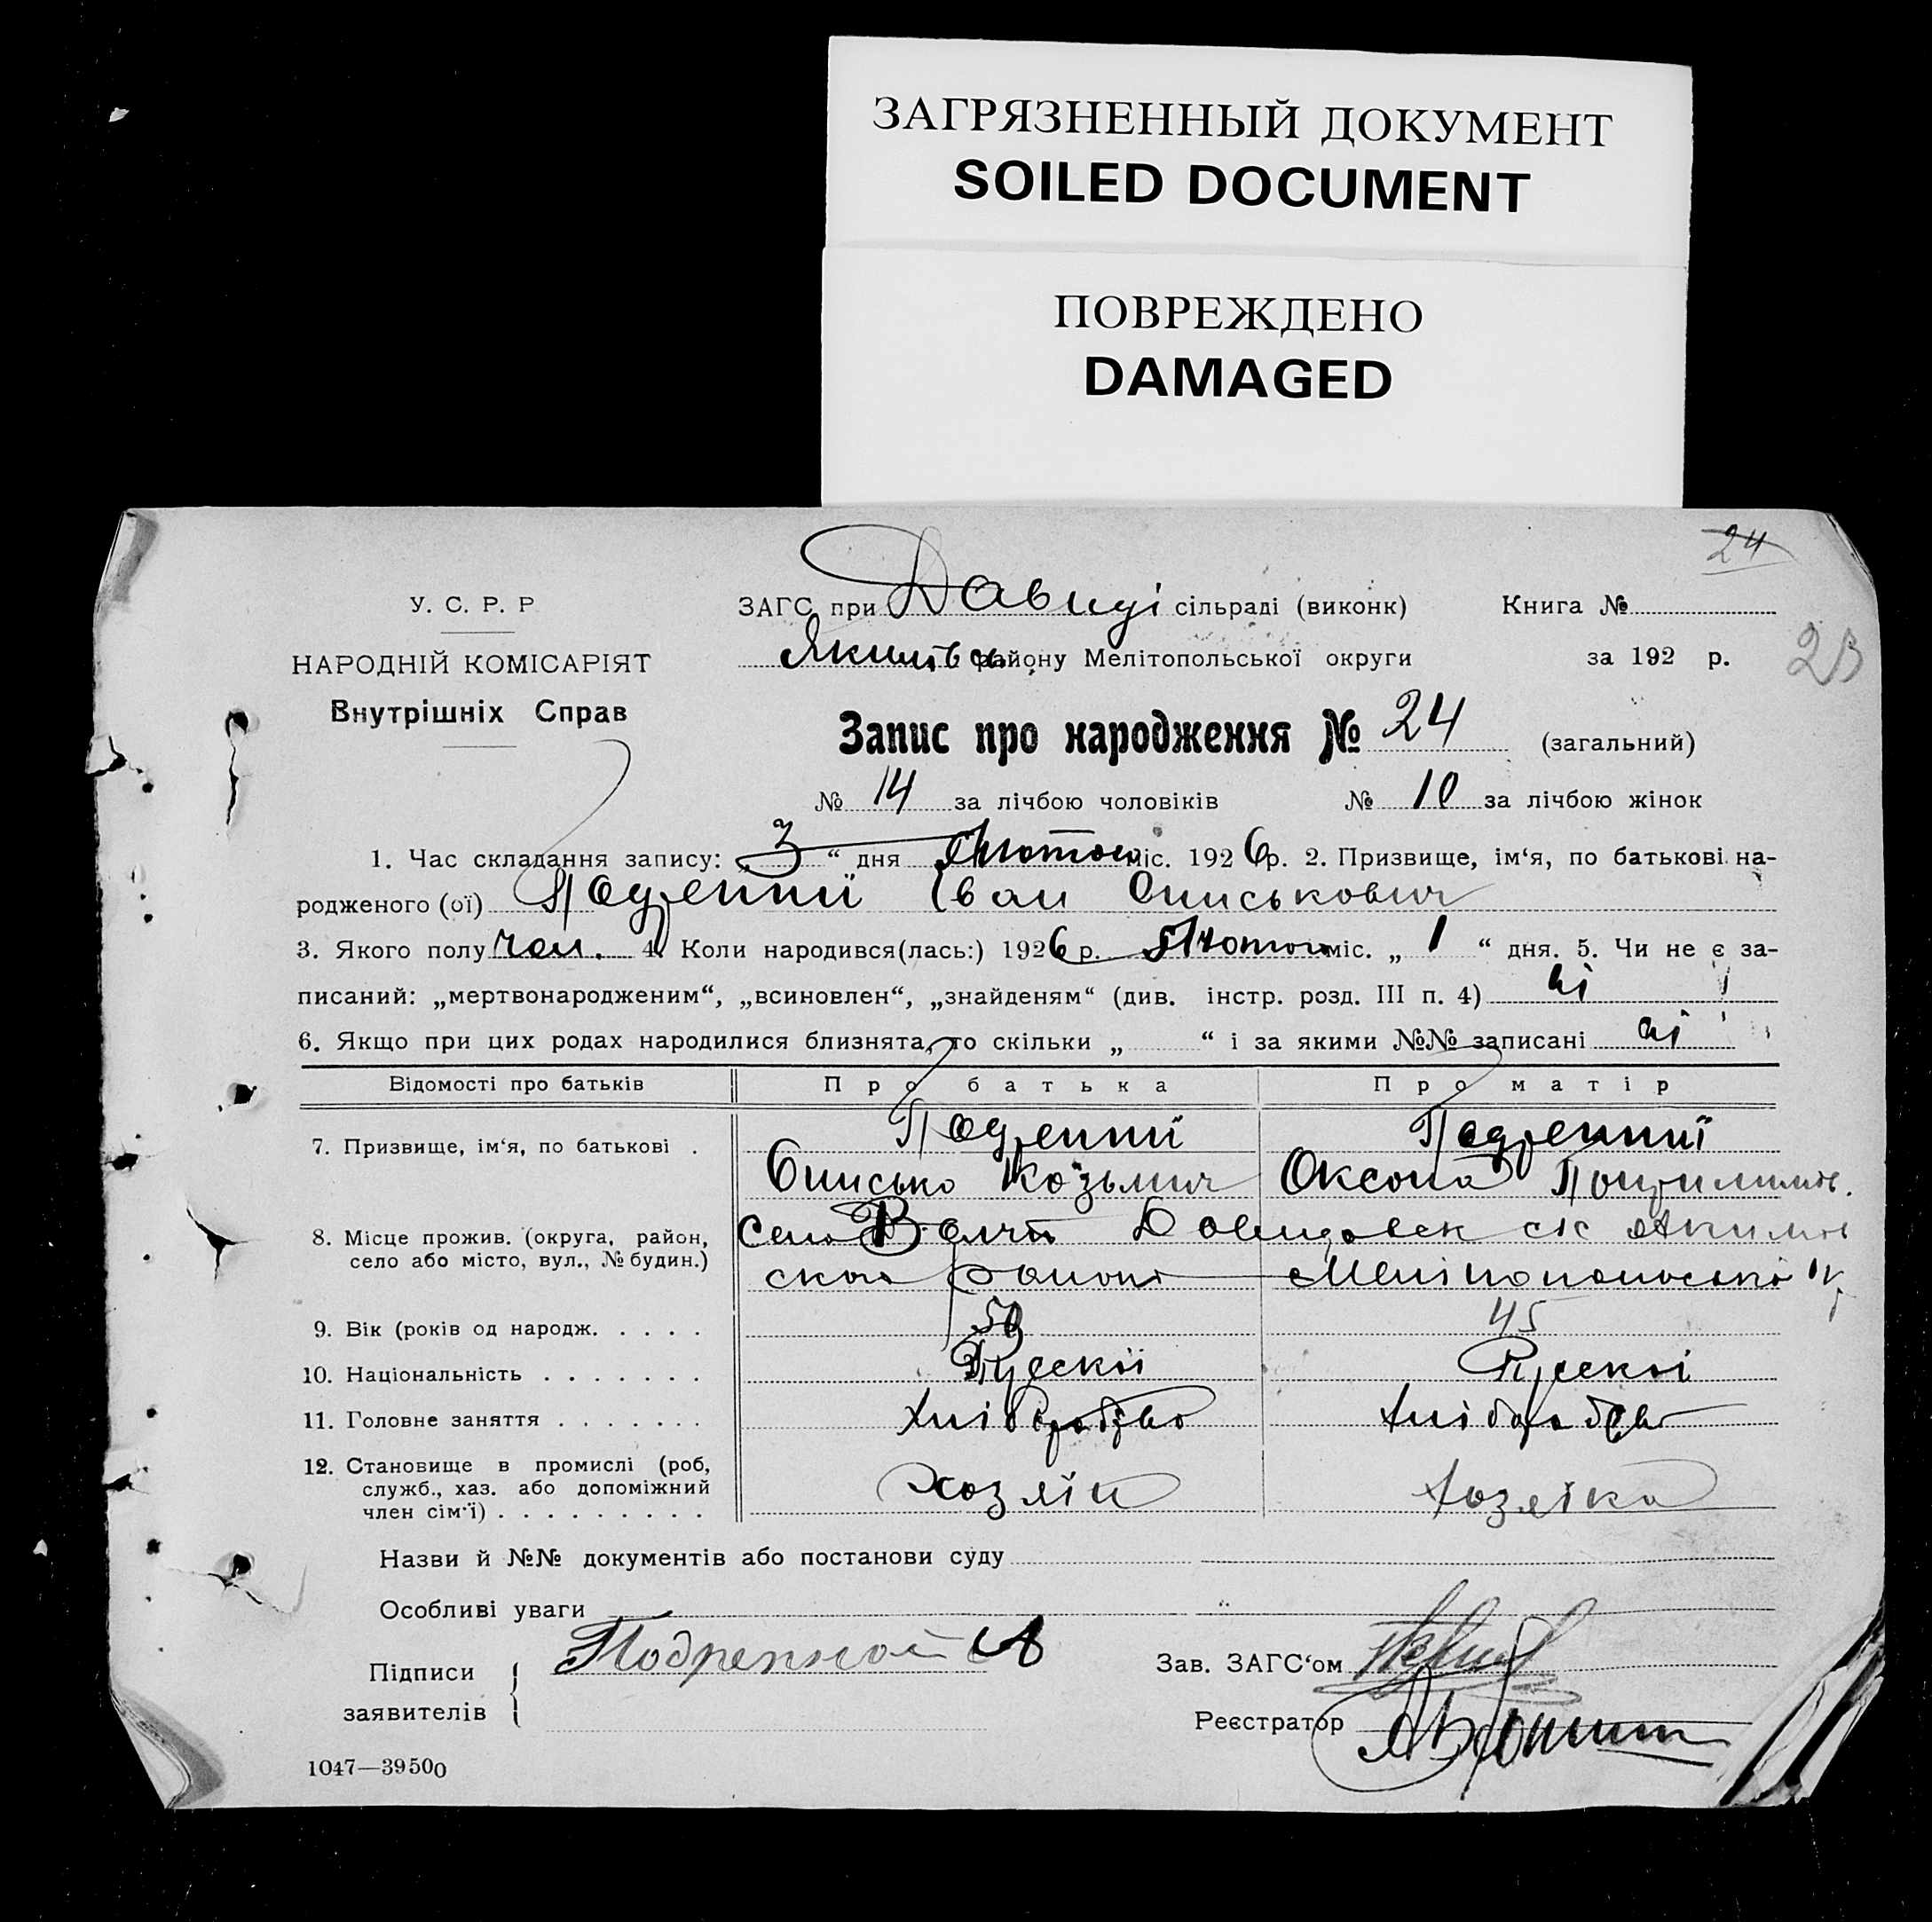 ЗАГРЯЗНЕННЫЙ ДОКУМЕНТ
SOILED DOCUMENT
ПОВРЕЖДЕНО
DAMAGED
24
У. С. Р. Р
ЗАГС при Давиді сільраді (виконк) Книга №
НАРОДНІЙ КОМІСАРІЯТ
Якимівсь району Мелітопольської округи за 192 р.
23
Внутрішніх Справ
Запис про народження № 24 (загальний)
№ 14 за лічбою чоловіків № 10 за лічбою жінок
1. Час складання запису: „ 3 “ дня Лютого міс. 1926 р. 2. Призвище, ім‘я, по батькові на-
родженого (ої) Подренний Іван Ониськович
3. Якого полу чол. 4. Коли народився(лась:) 1926 р. Лютого міс. „ 1 “ дня. 5. Чи не є за-
писаний: „мертвонародженим“, „всиновлен“, „знайденям“ (див. інстр. розд. III п. 4) ні
6. Якщо при цих родах народилися близнята, то скільки „ “ і за якими №№ записані ні
Відомості про батьків Про батька Про матір
7. Призвище, ім‘я, по батькові . Подренний Подренниї
Онисько Козьмич Оксона
8. Місце прожив. (округа, район, село або місто, вул., № будин.) село Давидовск ск Якимов
ского району Мелітопольські ок
9. Вік (років од народж. . . . . 50 45
10. Національність . . . . . . . Русскої Русскої
11. Головне заняття . . . . . . . Хліборобство Хліборобств
12. Становище в промислі (роб,
служб., хаз. або допоміжний
член сім‘ї) . . . . . . . . . хозяін хозяїка
Назви й №№ документів або постанови суду
Особливі уваги
Підписи
заявителів
Подренной
Зав. ЗАГС‘ом
Реєстратор
1047—39500